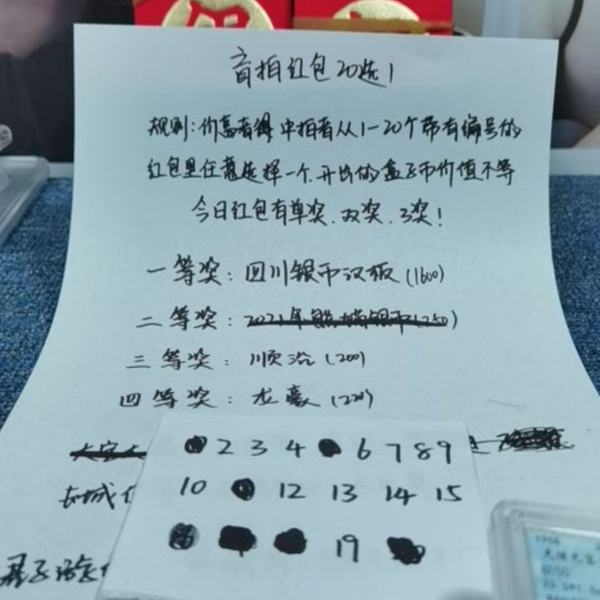 盲拍红包20选1
规则:价高者得 中拍者从1-20个带有编号的
红包里任意选择一个.开出的盒子币价值不等
今日红包有单奖.双奖.3奖!
一等奖:四川银币汉版(1600)
二等奖:
三等奖:顺治(200)
四等奖:龙毫(220)
2 3 4 6 7 8 9
长城
10 12 13 14 15
19